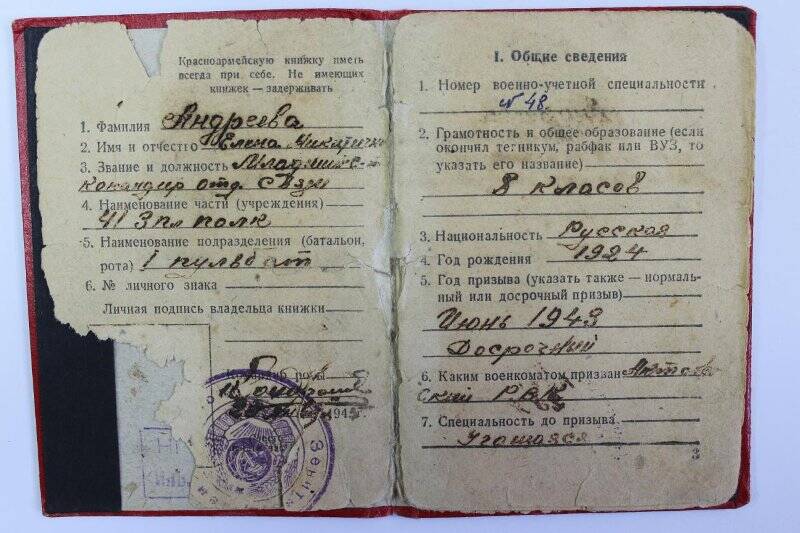 Красноармейскую книжку иметь
всегда при себе. Не имеющих
книжек — задерживать
1. Фамилия Андреева
2. Имя и отчество Елена Никитична
3. Звание и должность Младший с-т
командир отд. связи
4. Наименование части (учреждения)
41 Зпл полк
5. Наименование подразделения (батальон,
рота) I пульбат
6. № личного знака
Личная подпись владельца книжки
Командир роты
194
Зенит
I. Общие сведения
1. Номер военно-учетной специальности
№ 48
2. Грамотность и общее образование (если
окончил техникум, рабфак или ВУЗ, то
указать его название)
8 класов
3. Национальность Русская
4. Год рождения 1924
5. Год призыва (указать также — нормаль-
ный или досрочный призыв)
Июнь 1943
Досрочный
6. Каким военкоматом призван
ский РВК
7. Специальность до призыва
Учащаяся
3